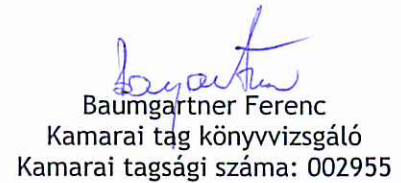 Baumgartner Ferenc
Kamarai tag könyvvizsgáló
Kamarai tagsági száma: 002955